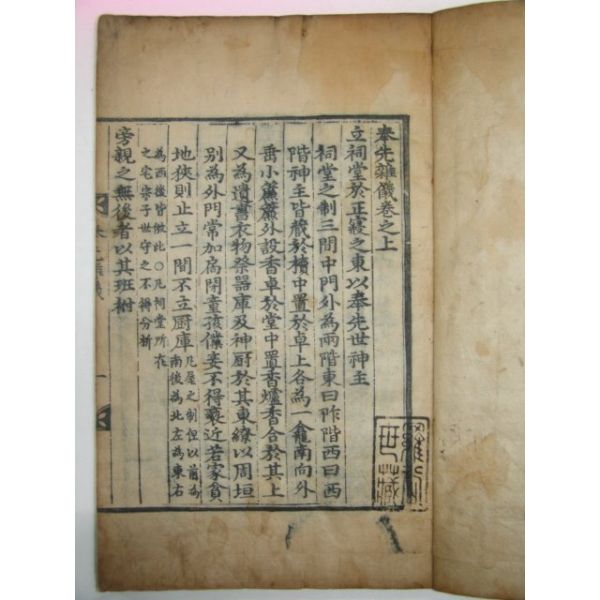 奉先雜儀卷之上
立祠堂於正寢之東以奉先世神主
祠堂之制三間中門外為兩階東曰阼階西曰西
階神主皆藏於櫝中置於卓上各為一龕南向外
垂小簾簾外設香卓於堂中置香爐香合於其上
又為遺書衣物祭器庫及神厨於其東繚以周垣
別為外門常加扄閉童孩僕妾不得褻近若家貧
地狹則止立一間不立厨庫凡屋之制但以前為
南後為北左為東右
為西後皆倣此○凡祠堂所在
之宅宗子世守之不得分析
旁親之無後者以其班祔
世藏